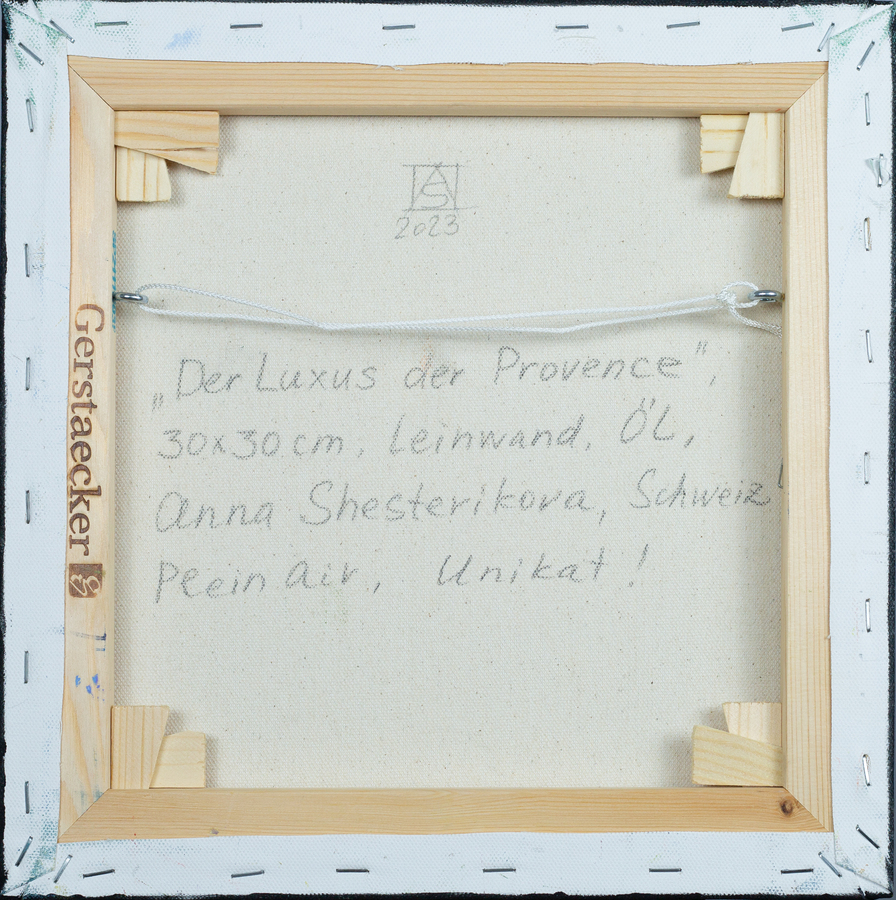 AS
2023
„Der Luxus der Provence",
30x30cm, Leinwand, ÖL,
Anna Shesterikova, Schweiz
Pleinair, Unikat!
Gerstaecker